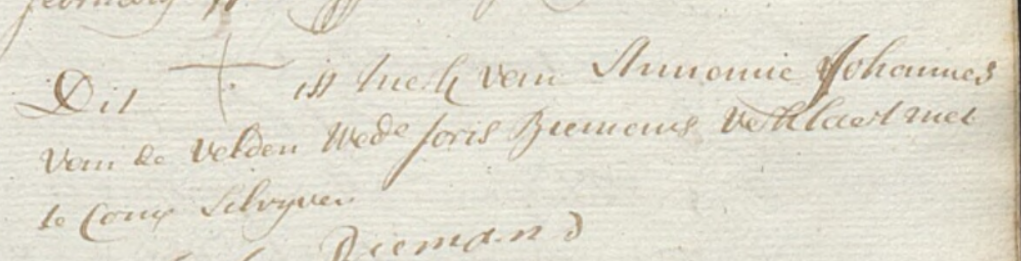 February
Dit + ist merk van Annomie Johannes
van de velden Wed^e Joris Biemans verklaert niet
te Conn Schryven
Biemans